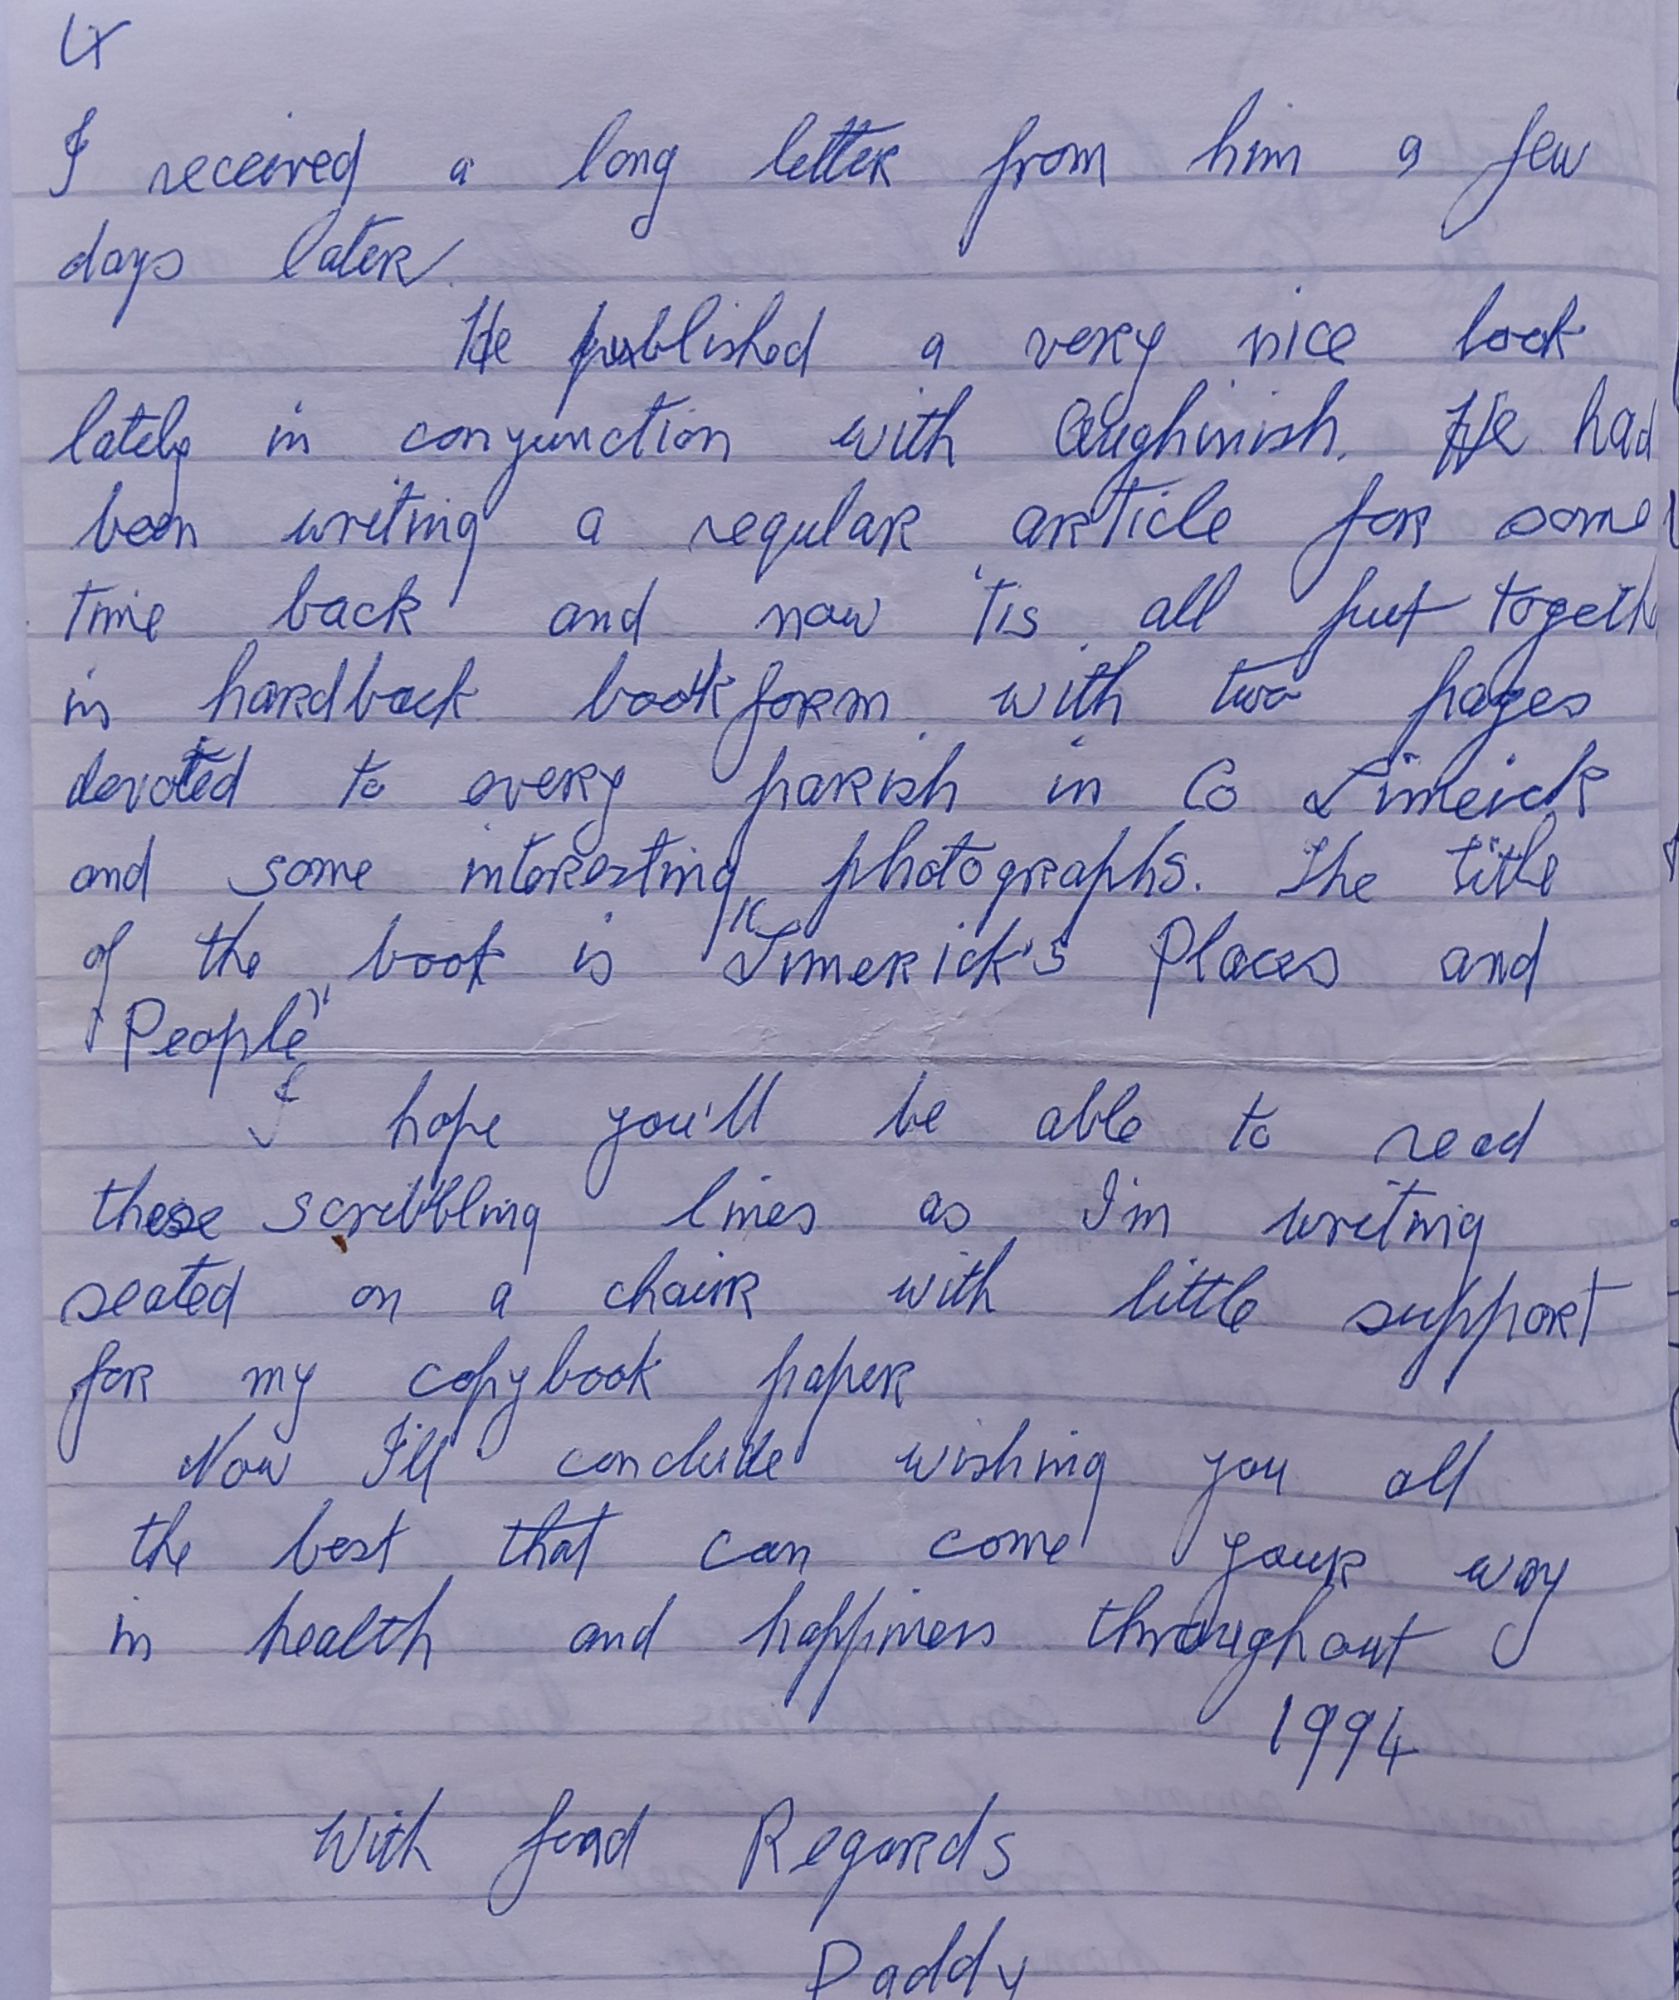 4
I received a long letter from him a few
days later.
He published a very nice book
lately in conjunction with Aughinish. He had
been writing a regular article for some
time back and now 'tis all put togeth
in hardback book form with two pages
devoted to every parish in Co Limerick
and some interesting photographs. The title
of the book is "Limerick's Places and
People"
I hope you'll be able to read
these scribbling lines as I'm writing
seated on a chair with little support
for my copybook paper
Now I'll conclude wishing you all
the best that can come your way
in health and happiness throughout
1994
With fond Regards
Paddy